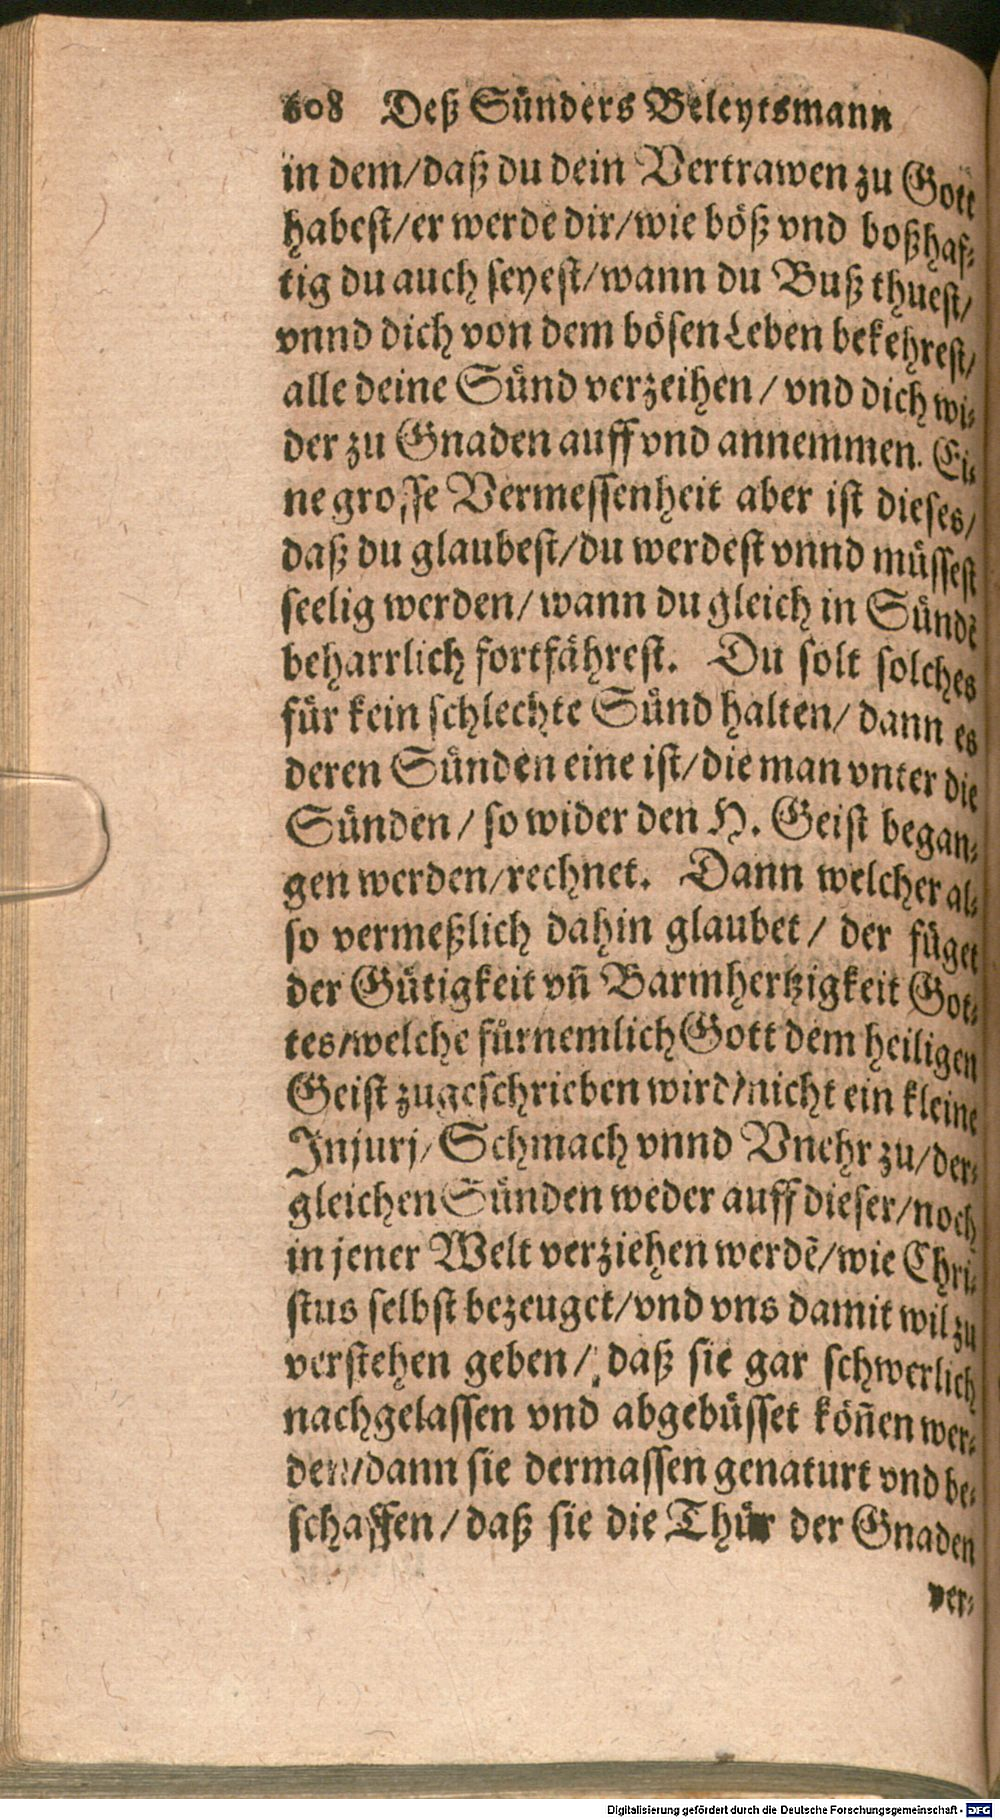 608 Deß Sünders Beleytsmann
in dem/daß du dein Vertrawen zu Gott
habest/er werde dir/wie böß vnd boßhaf-
tig du auch seyest/wann du Buß thuest/
vnnd dich von dem bösen Leben bekehrest/
alle deine Sünd verzeihen / vnd dich wi-
der zu Gnaden auff vnd annemmen. Ei-
ne grosse Vermessenheit aber ist dieses/
daß du glaubest/du werdest vnnd müssest
seelig werden/wann du gleich in Sündẽ
beharrlich fortfährest. Du solt solches
für kein schlechte Sünd halten/dann es
deren Sünden eine ist/die man vnter die
Sünden / so wider den H. Geist began-
gen werden/rechnet. Dann welcher al-
so vermeßlich dahin glaubet / der füget
der Gütigkeit vñ Barmhertzigkeit Got-
tes/welche fürnemlich Gott dem heiligen
Geist zugeschrieben wird/nicht ein kleine
Injurj/Schmach vnnd Vnehr zu/der-
gleichen Sünden weder auff dieser/noch
in jener Welt verziehen werdẽ/wie Chri-
stus selbst bezeuget/vnd vns damit wil zu
verstehen geben / daß sie gar schwerlich
nachgelassen vnd abgebüsset köñen wer-
den/dann sie dermassen genaturt vnd be-
schaffen / daß sie die Thür der Gnaden
ver-
Digitalisierung gefördert durch die Deutsche Forschungsgemeinschaft - DFG